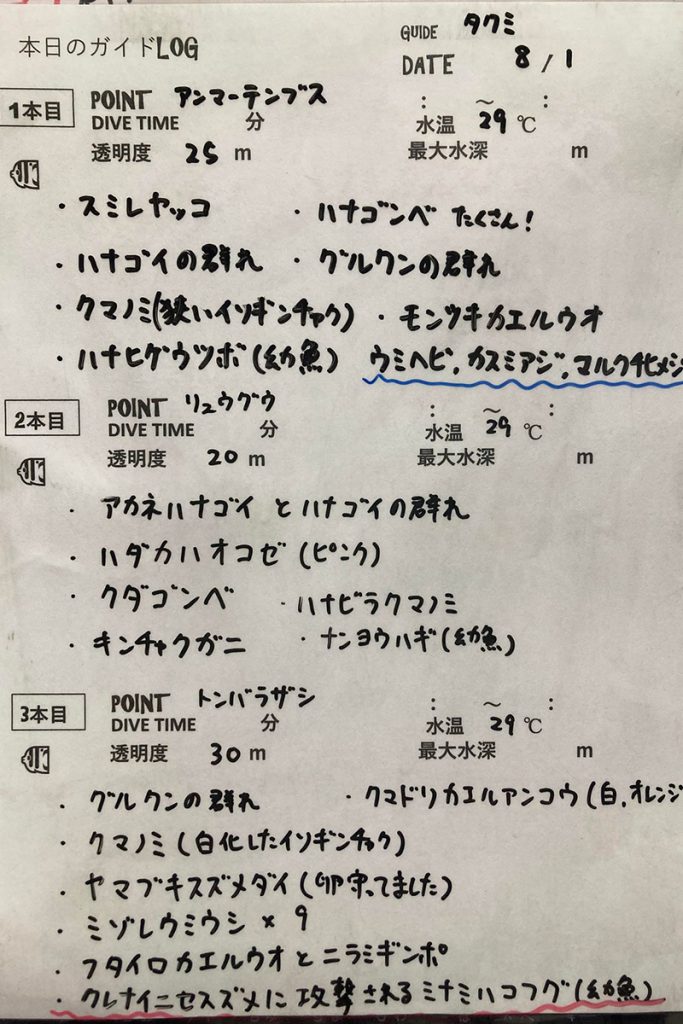 本日のガイドLOG
GUIDE タクミ
DATE 8/1
1本目 POINT アンマーテンブス : ～ :
DIVE TIME 分 水温 29 ℃
透明度 25 m 最大水深 m
・スミレヤッコ ・ハナゴンベ たくさん!
・ハナゴイの群れ ・グルクンの群れ
・クマノミ(狭いイソギンチャク) ・モンツキカエルウオ
・ハナヒゲウツボ(幼魚) ウミヘビ, カスミアジ, マルクチヒメジ
2本目 POINT リュウグウ : ～ :
DIVE TIME 分 水温 29 ℃
透明度 20 m 最大水深 m
・アカネハナゴイ と ハナゴイの群れ
・ハダカハオコゼ (ピンク)
・クダゴンベ ・ハナビラクマノミ
・キンチャクガニ ・ナンヨウハギ(幼魚)
3本目 POINT トンバラザシ : ～ :
DIVE TIME 分 水温 29 ℃
透明度 30 m 最大水深 m
・グルクンの群れ ・クマドリカエルアンコウ(白, オレンジ
・クマノミ(白化したイソギンチャク)
・ヤマブキスズメダイ(卵守ってました)
・ミゾレウミウシ × 9
・フタイロカエルウオとニラミギンポ
・クレナイニセスズメに攻撃されるミナミハコフグ(幼魚)